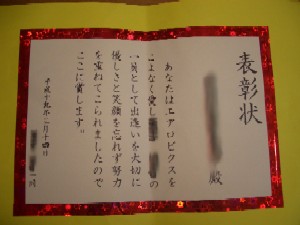 表彰状
殿
あなたはエアロビクスを
こよなく愛し の
一員として出逢いを大切に
優しさと笑顔を忘れず努力
を重ねてこられましたので
ここに賞します。
平成十九年二月十四日